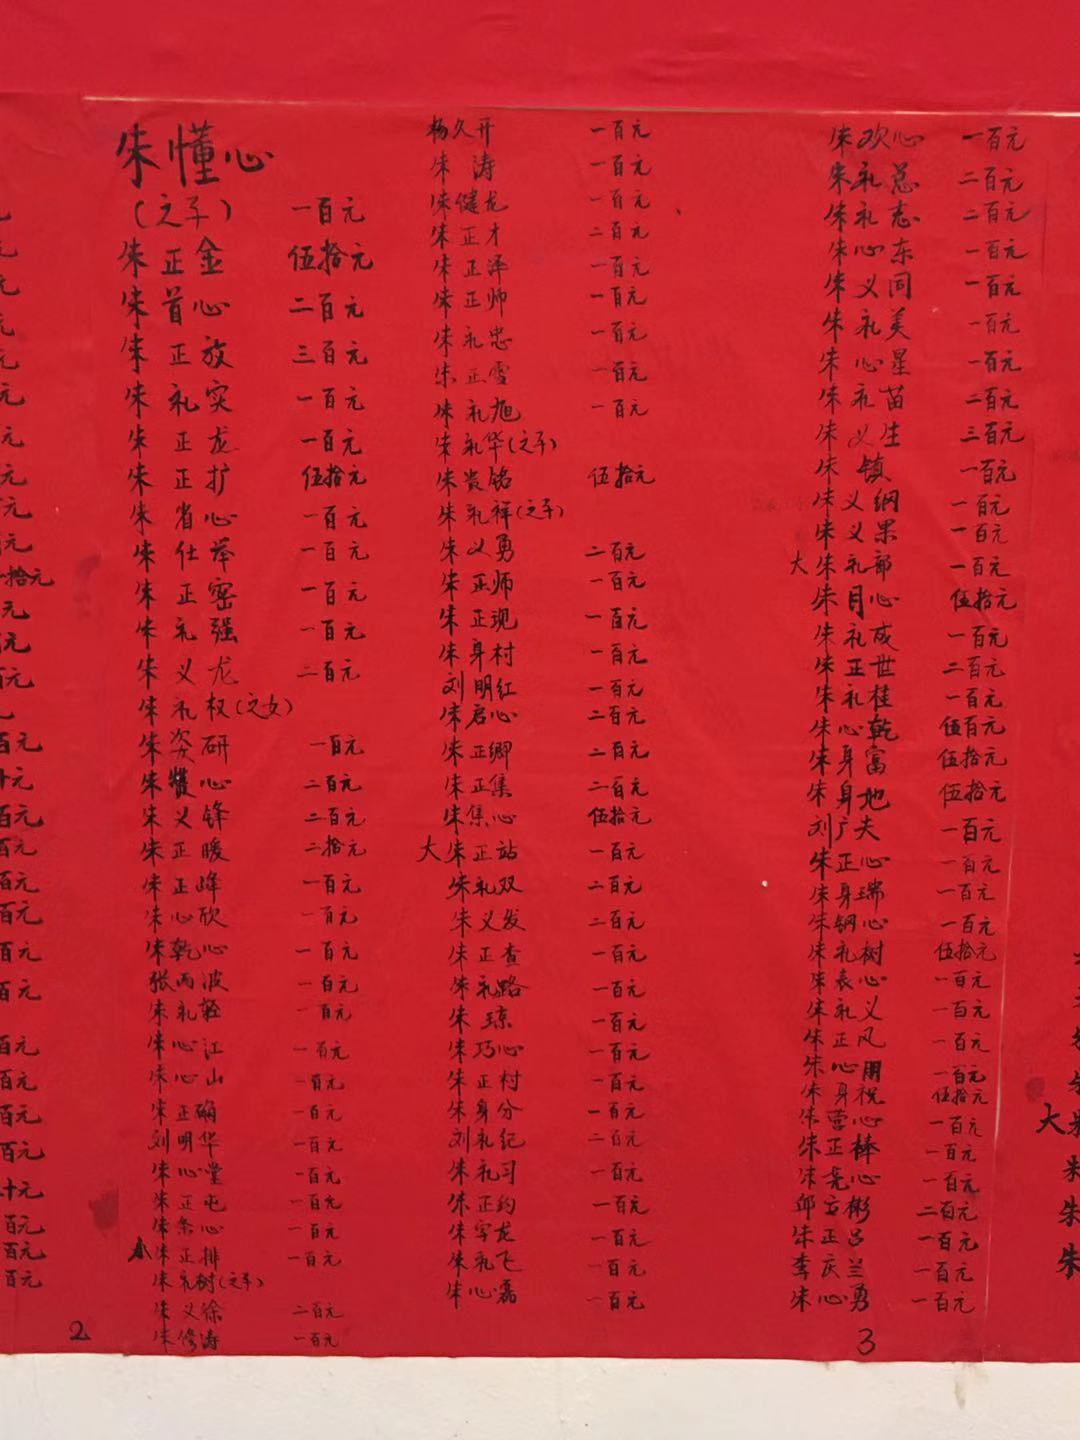 朱懂心
(之子) 一百元
朱正金 伍拾元
朱首心 二百元
朱正放 三百元
朱礼实 一百元
朱正龙 一百元
朱正扩 伍拾元
朱省心 一百元
朱仕举 一百元
朱正密 一百元
朱礼强 一百元
朱义龙 二百元
朱礼权(之女)
朱姿研 一百元
朱心 二百元
朱义锋 二百元
朱正暖 二拾元
朱正峰 一百元
朱心欣 一百元
朱乾心 一百元
张丙波 一百元
朱礼轻 一百元
朱心江 一百元
朱心山 一百元
朱正确 一百元
刘明华 一百元
朱心堂 一百元
朱正屯 一百元
朱条心 一百元
小朱正排 一百元
朱礼树(之子)
朱义徐 二百元
朱修涛 一百元
2
杨久开 一百元
朱涛 一百元
朱健龙 一百元
朱正才 二百元
朱正泽 一百元
朱正师 一百元
朱礼忠 一百元
朱正雪 一百元
朱礼旭 一百元
朱礼华(之子)
朱贵铭 伍拾元
朱礼祥(之子)
朱义勇 二百元
朱正师 一百元
朱正现 一百元
朱身村 一百元
刘明红 一百元
朱启心 二百元
朱正卿 二百元
朱正集 二百元
朱集心 伍拾元
大朱正站 一百元
朱礼双 二百元
朱义发 二百元
朱正查 一百元
朱礼路 一百元
朱琼 一百元
朱巧心 一百元
朱正村 一百元
朱身分 一百元
刘礼纪 二百元
朱礼习 一百元
朱正约 一百元
朱字龙 一百元
朱礼飞 一百元
朱心磊 一百元
朱欢心 一百元
朱礼总 二百元
朱礼志 二百元
朱心东 一百元
朱义同 一百元
朱礼美 一百元
朱心星 一百元
朱礼苗 二百元
朱义生 三百元
朱镇 一百元
朱义纲 一百元
朱义果 一百元
大朱礼部 一百元
朱月心 伍拾元
朱礼成 一百元
朱正世 二百元
朱礼桂 一百元
朱心乾 伍百元
朱身富 伍拾元
朱身地 伍拾元
刘广夫 一百元
朱正心 一百元
朱身瑞 一百元
朱钢心 一百元
朱礼树 伍拾元
朱表心 一百元
朱礼义 一百元
朱正风 一百元
朱心用 一百元
朱身祝 伍拾元
朱营心 一百元
朱正棒 一百元
朱亮心 一百元
邱立彬 二百元
朱正吕 一百元
李庆兰 一百元
朱心勇 一百元
3